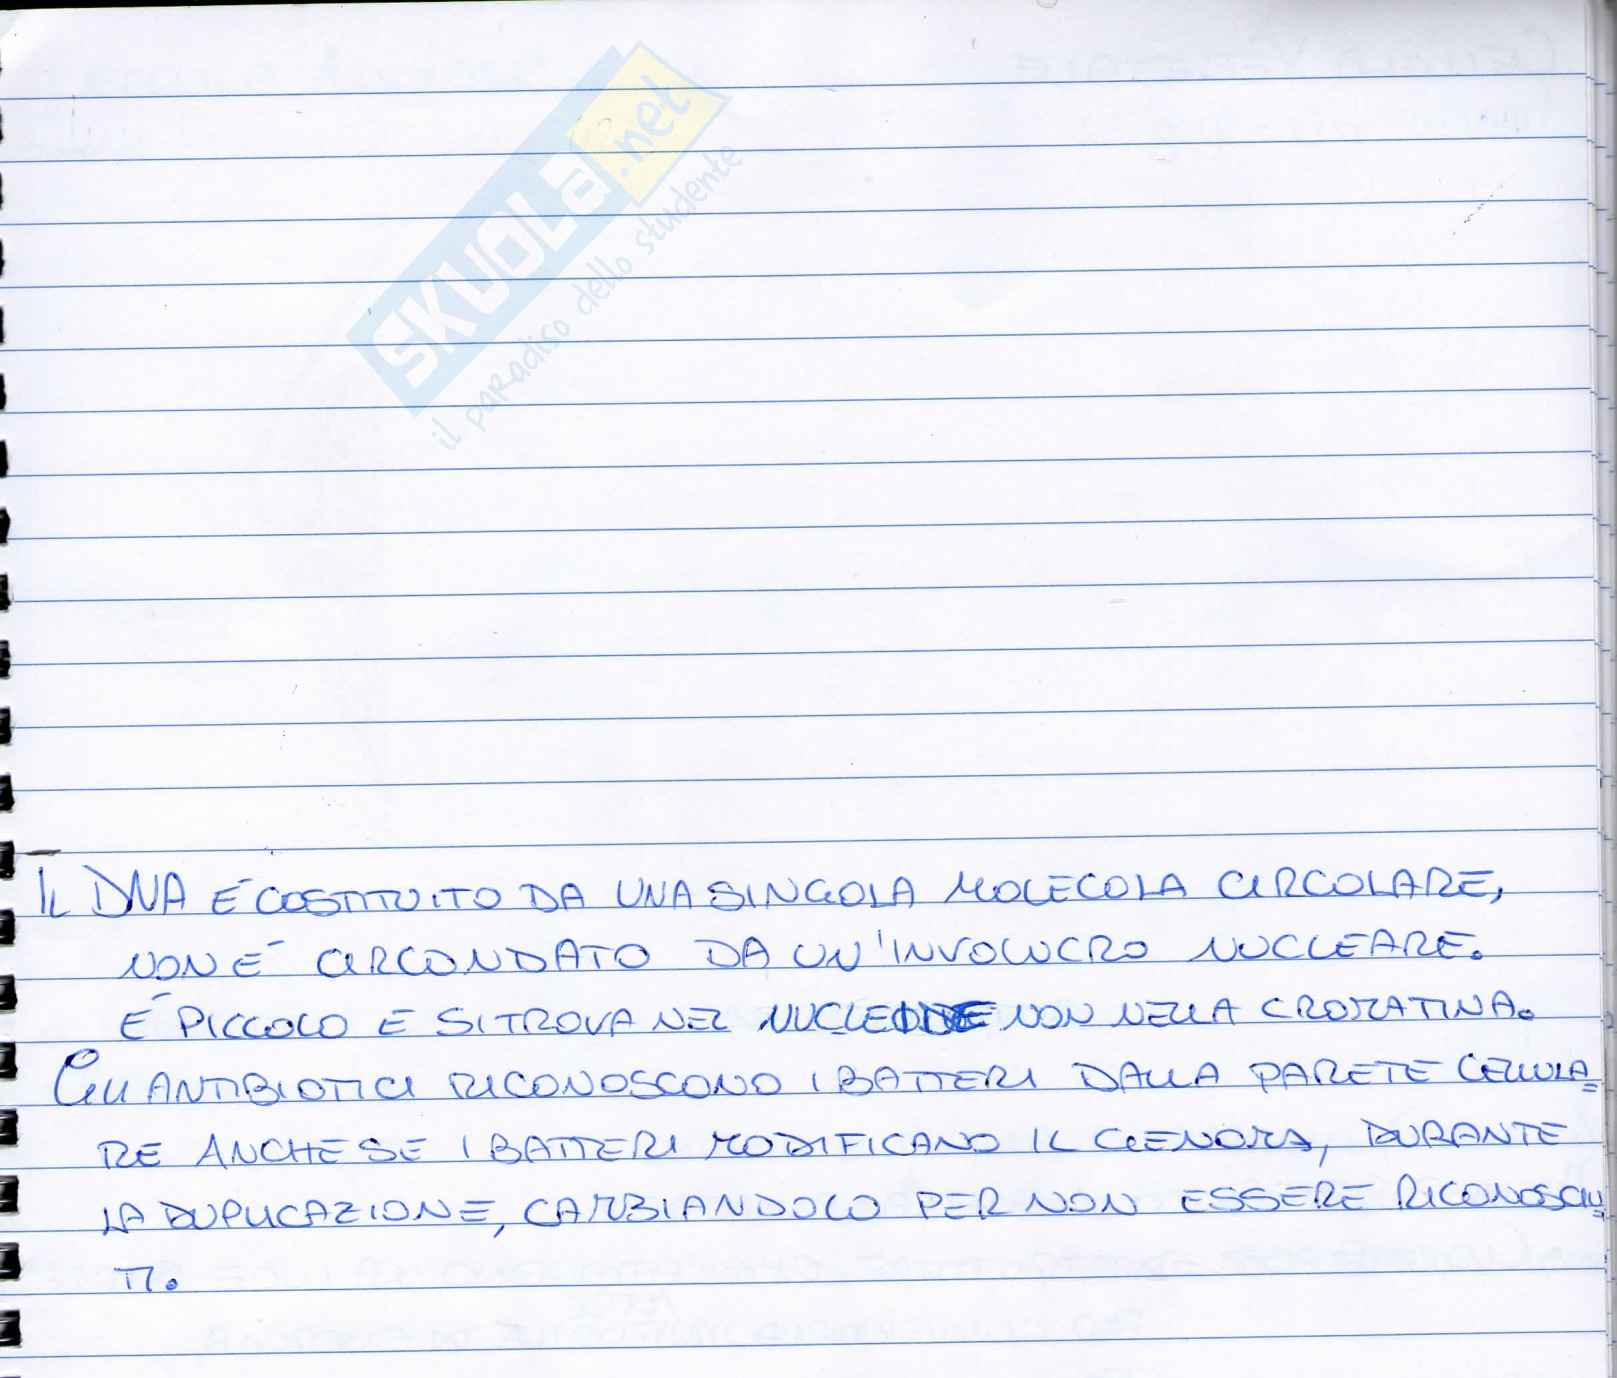 SKUOLA.net
il paradiso dello studente
IL DNA È COSTITUITO DA UNA SINGOLA MOLECOLA CIRCOLARE,
NON È CIRCONDATO DA UN'INVOLUCRO NUCLEARE.
È PICCOLO E SI TROVA NEL NON NELLA CROMATINA.
GLI ANTIBIOTICI RICONOSCONO I BATTERI DALLA PARETE CELLULA=
RE ANCHE SE I BATTERI MODIFICANO IL GENOMA, DURANTE
LA DUPLICAZIONE, CAMBIANDOLO PER NON ESSERE RICONOSCIU=
TI.